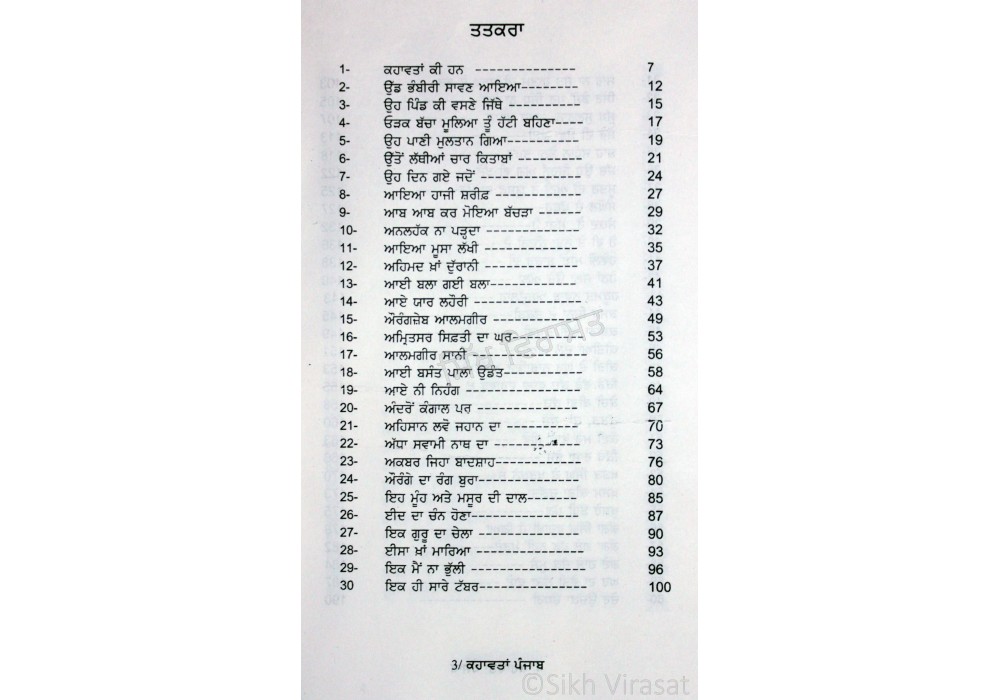 ਤਤਕਰਾ
1- ਕਹਾਵਤਾਂ ਕੀ ਹਨ -------------- 7
2- ਉੱਡ ਭੰਬੀਰੀ ਸਾਵਣ ਆਇਆ-------- 12
3- ਉਹ ਪਿੰਡ ਕੀ ਵਸਣੇ ਜਿੱਥੇ ----------- 15
4- ਓੜਕ ਬੱਚਾ ਮੂਲਿਆ ਤੂੰ ਹੱਟੀ ਬਹਿਣਾ---- 17
5- ਉਹ ਪਾਣੀ ਮੁਲਤਾਨ ਗਿਆ---------- 19
6- ਉੱਤੋਂ ਲੱਥੀਆਂ ਚਾਰ ਕਿਤਾਬਾਂ --------- 21
7- ਉਹ ਦਿਨ ਗਏ ਜਦੋਂ -------------- 24
8- ਆਇਆ ਹਾਜੀ ਸ਼ਰੀਫ਼ ------------ 27
9- ਆਬ ਆਬ ਕਰ ਮੋਇਆ ਬੱਚੜਾ ------ 29
10- ਅਨਲਹੱਕ ਨਾ ਪੜ੍ਹਦਾ ------------- 32
11- ਆਇਆ ਮੂਸਾ ਲੱਖੀ ------------- 35
12- ਅਹਿਮਦ ਖ਼ਾਂ ਦੁੱਰਾਨੀ ------------- 37
13- ਆਈ ਬਲਾ ਗਈ ਬਲਾ------------ 41
14- ਆਏ ਯਾਰ ਲਹੌਰੀ --------------- 43
15- ਔਰੰਗਜ਼ੇਬ ਆਲਮਗੀਰ ------------ 49
16- ਅਮ੍ਰਿਤਸਰ ਸਿਫ਼ਤੀ ਦਾ ਘਰ--------- 53
17- ਆਲਮਗੀਰ ਸਾਨੀ --------------- 56
18- ਆਈ ਬਸੰਤ ਪਾਲਾ ਉਡੰਤ----------- 58
19- ਆਏ ਨੀ ਨਿਹੰਗ ---------------- 64
20- ਅੰਦਰੋਂ ਕੰਗਾਲ ਪਰ -------------- 67
21- ਅਹਿਸਾਨ ਲਵੋ ਜਹਾਨ ਦਾ ---------- 70
22- ਅੱਧਾ ਸਵਾਮੀ ਨਾਥ ਦਾ ------------ 73
23- ਅਕਬਰ ਜਿਹਾ ਬਾਦਸ਼ਾਹ------------ 76
24- ਔਰੰਗੇ ਦਾ ਰੰਗ ਬੁਰਾ------------- 80
25- ਇਹ ਮੂੰਹ ਅਤੇ ਮਸੂਰ ਦੀ ਦਾਲ------- 85
26- ਈਦ ਦਾ ਚੰਨ ਹੋਣਾ--------------- 87
27- ਇਕ ਗੁਰੂ ਦਾ ਚੇਲਾ -------------- 90
28- ਈਸਾ ਖ਼ਾਂ ਮਾਰਿਆ --------------- 93
29- ਇਕ ਮੈਂ ਨਾ ਭੁੱਲੀ --------------- 96
30 ਇਕ ਹੀ ਸਾਰੇ ਟੱਬਰ--------------- 100
ਸਿੱਖ ਵਿਰਾਸਤ
3/ ਕਹਾਵਤਾਂ ਪੰਜਾਬ
©Sikh Virasat